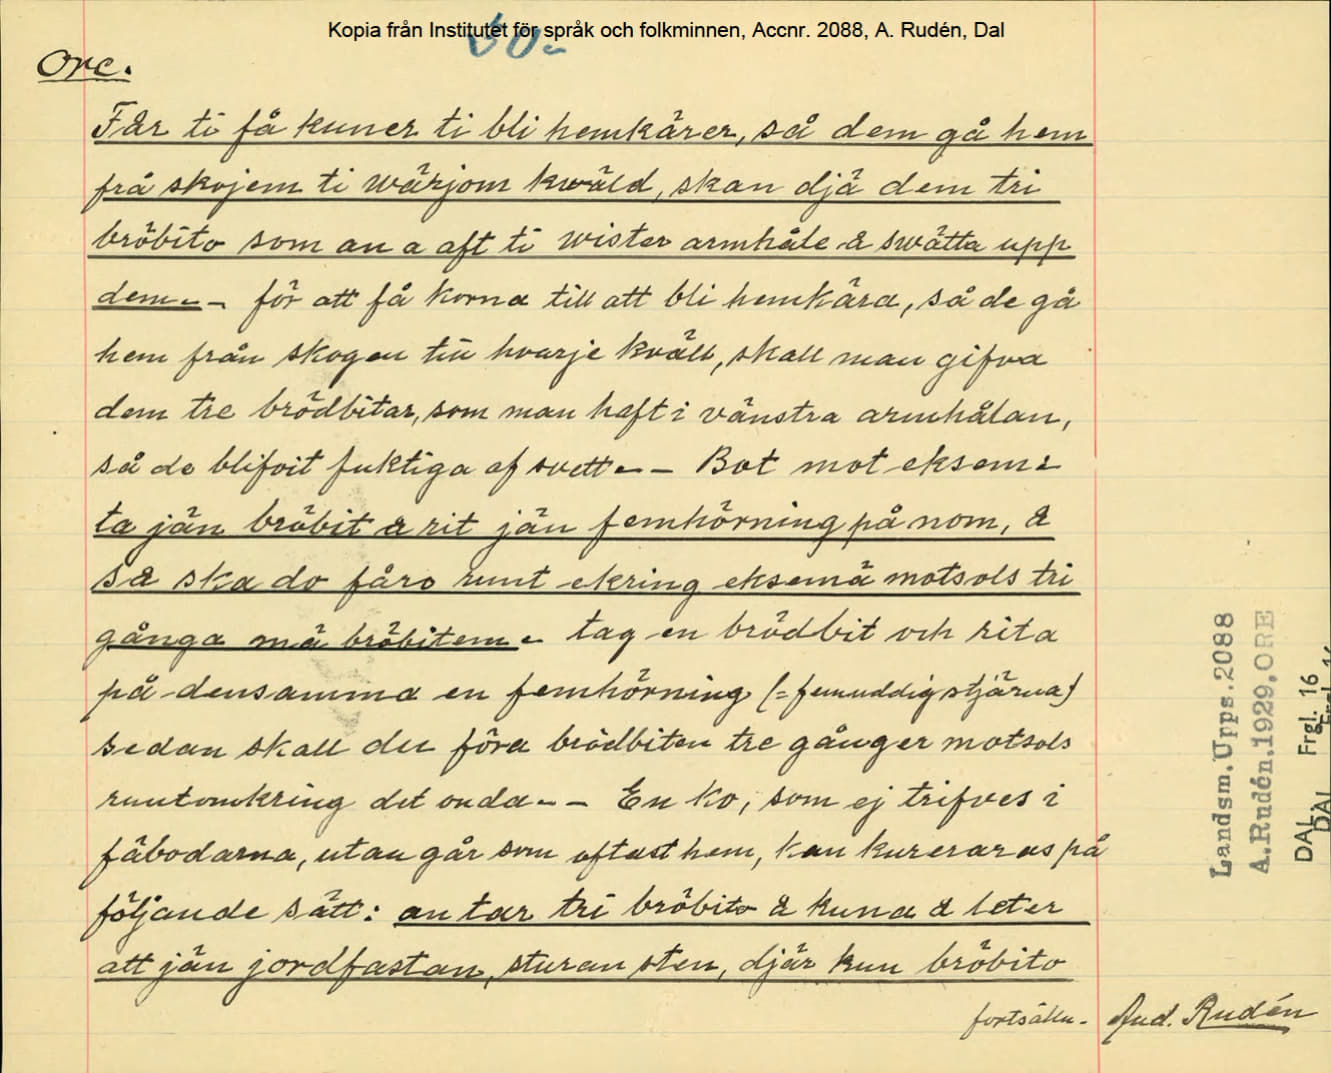 Kopia från Institutet för språk och folkminnen, Accnr. 2088, A. Rudén, Dal
50.
Ore.
Får ti få kuner ti bli hemkärer, så dem gå hem
frå skojem ti wärjom kwäld, skan djä dem tri
bröbito som an a aft ti wister armhåle å swätta upp
dem. - för att få korna till att bli hemkära, så de gå
hem från skogen till hvarje kväll, skall man gifva
dem tre brödbitar, som man haft i vänstra armhålan,
så de blifvit fuktiga af svett. - Bot mot eksem:
ta jän bröbit å rit jän femhörning på nom, å
så ska do fåro runt ekring eksemä motsols tri
gånga mä bröbitem. tag en brödbit och rita
på densamma en femhörning (= femuddig stjärna)
sedan skall du föra brödbiten tre gånger motsols
runtomkring det onda. - En ko, som ej trifves i
fäbodarna, utan går som oftast hem, kan kureraras på
följande sätt: an tar tri bröbito å kuna å leter
att jän jordfastan, sturan sten, djär kun bröbito
fortsättn.
Aud. Rudén
Landsm. Upps. 2088
A.Rudén.1929.ORE
DAL Frgl. 16
DAL Frgl. 16